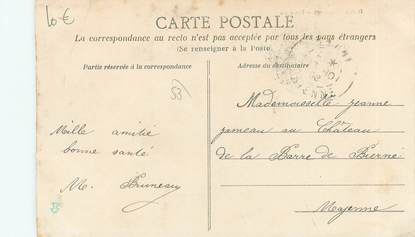 10-€
CARTE POSTALE
La correspondance au recto n'est pas acceptée par tous les pays étrangers
(Se renseigner à la Poste)
Partie réservée à la correspondance
Adresse du destinataire
53
Mille amitié
bonne santé
M. Bruneau
Mademoiselle jeanne
jameau au Château
de la Barre de Bierné
Mayenne